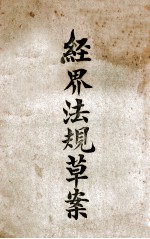 經界法規草案